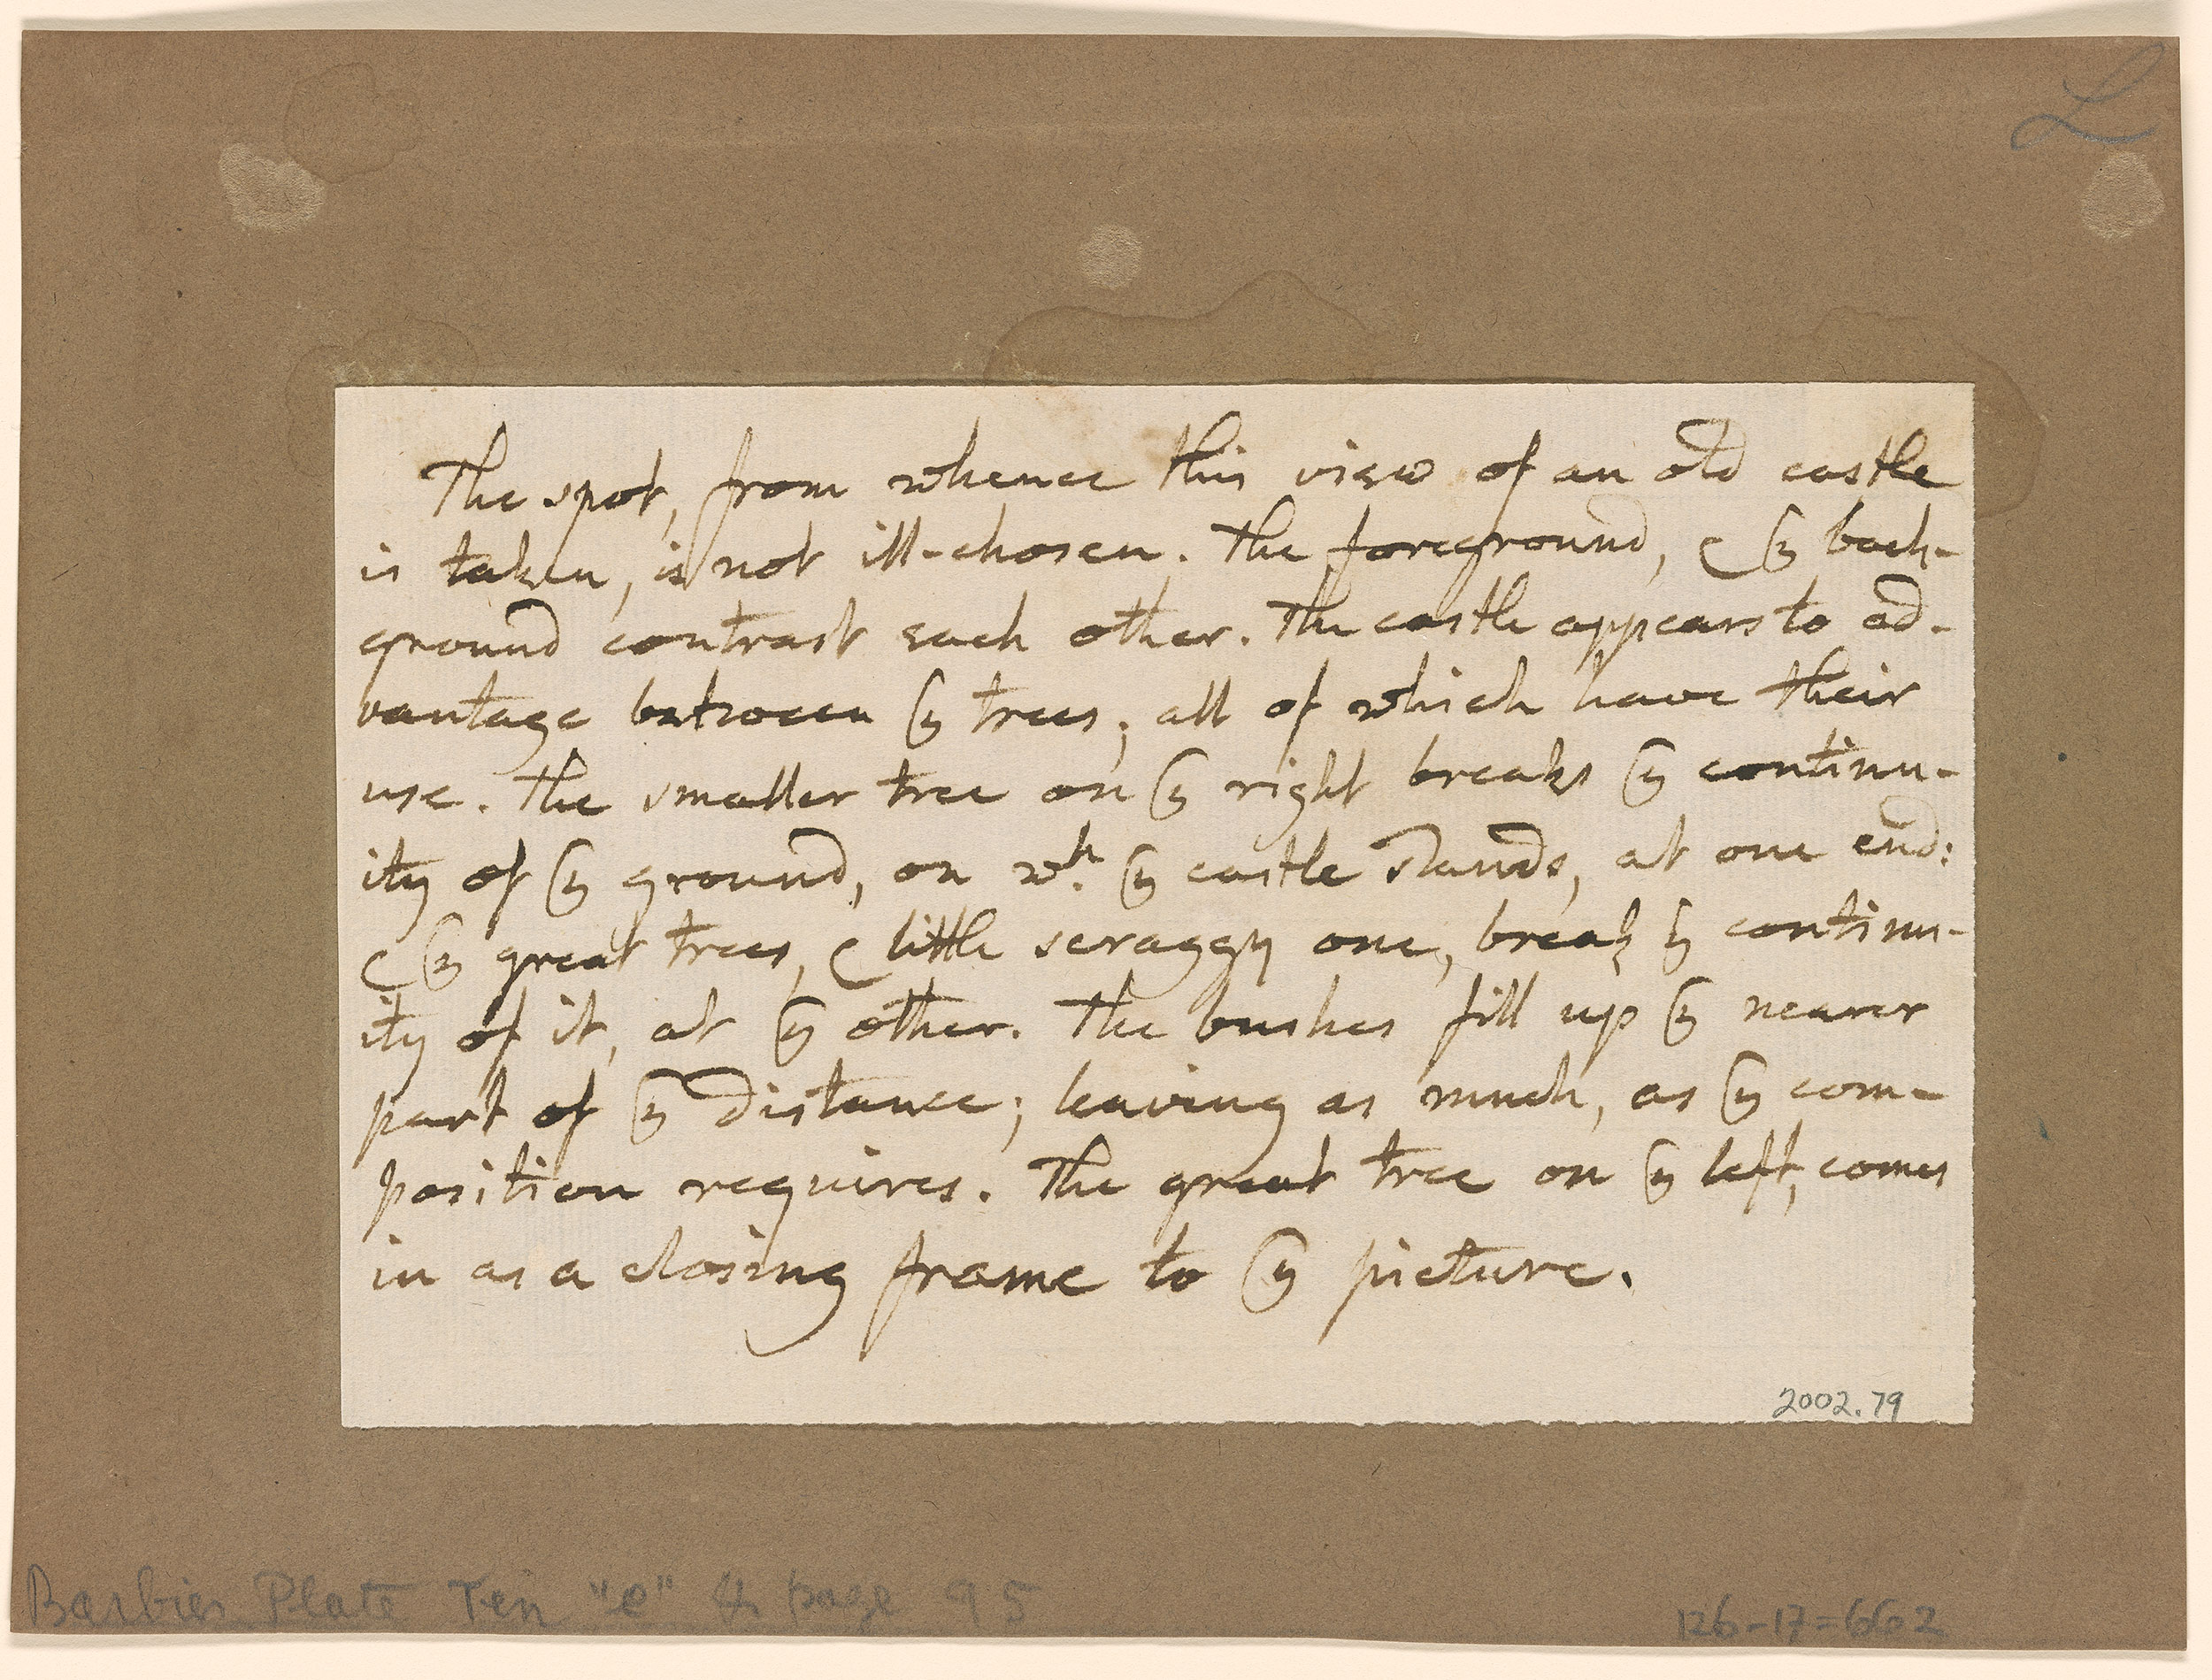 L
The spot, from whence this view of an old castle
is taken, is not ill-chosen. The foreground, & ye back-
ground contrast each other. The castle appears to ad-
vantage between ye trees; all of which have their
use. The smaller tree on ye right breaks ye continu-
ity of ye ground, on wh. ye castle stands, at one end:
& ye great trees, & little scraggy one, break ye continu-
ity of it, at ye other. The bushes fill up ye nearer
part of ye distance; leaving as much, as ye com-
position requires. The great tree on ye left, comes
in as a closing frame to ye picture.
2002.79
Barbier Plate Ten "e" & page 95
126-17=662